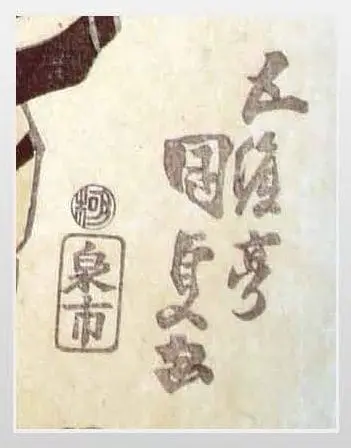 五渡亭
国貞画
極
泉市